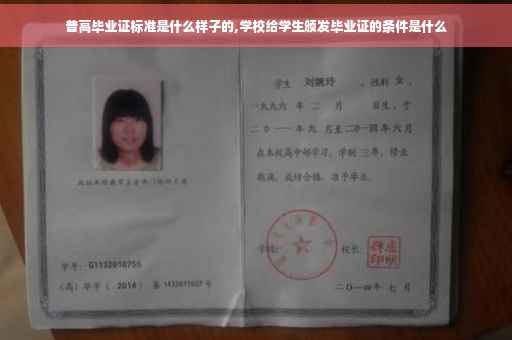 普高毕业证标准是什么样子的,学校给学生颁发毕业证的条件是什么
学生 刘婉玲 ,性别 女 ,
一九九六 年 二 月 日生,于
二〇一一年九 月至二〇一四年六月
在本校高中部学习,学制 三年,修业
期满,成绩合格,准予毕业。
学校:
校长:
学号: G1132010755
(高)毕字( 2014 )第 1432011027 号
二〇一四年 七 月